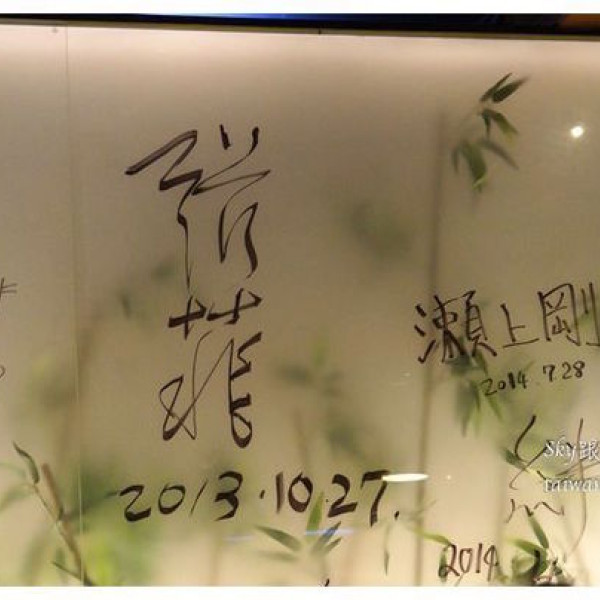 張菲
2013.10.27.
瀬上剛
2014.7.28
Sky跟
taiwan
2014